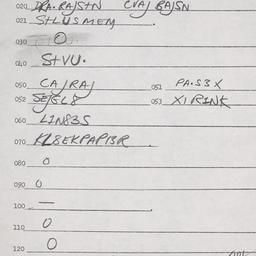 020 DRA. RAJStN CVAJ BAJSN
021 StLUSMEM
030 O
040 StVU.
050 CAJRAJ 051 PA.S3X
052 SEJGL8 053 XIRINK
060 LIN83S
070 KL8EKPAPIBR
080 O
090 O
100 —
110 O
120 O